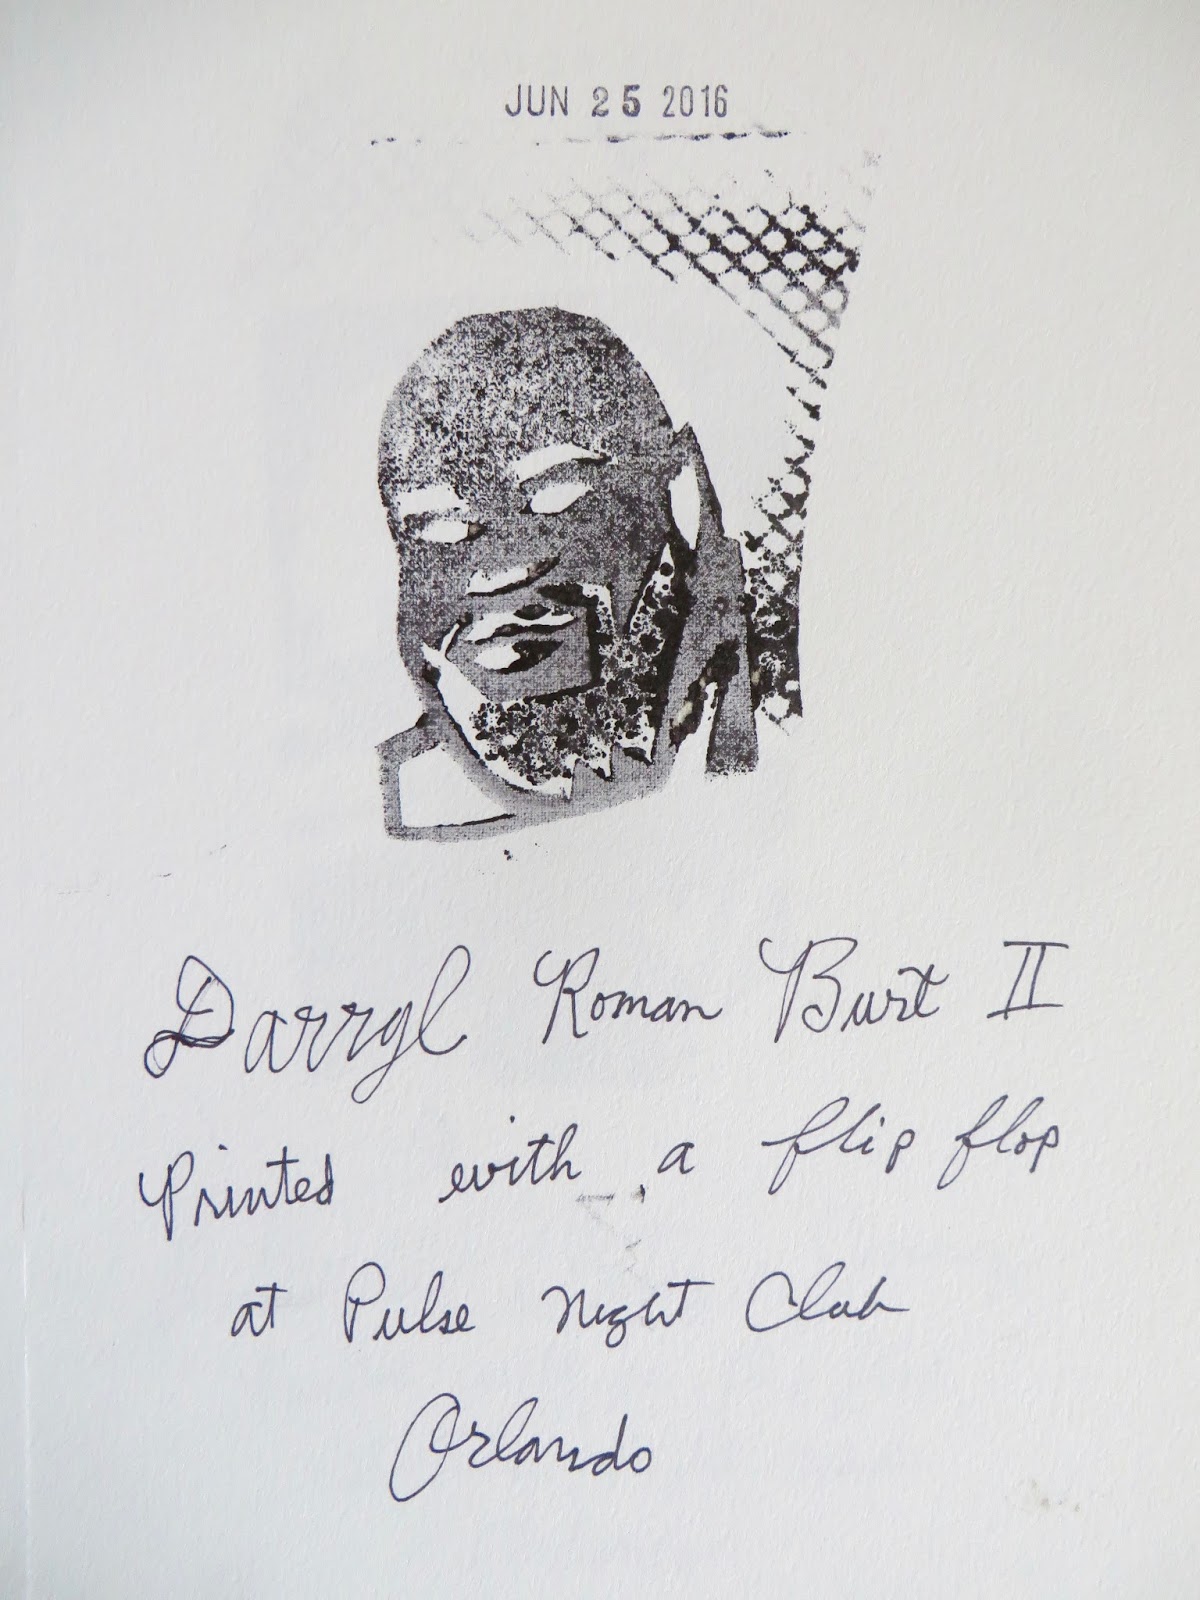 JUN 25 2016
Darryl Roman Burt II
Printed with a flip flop
at Pulse Night Club
Orlando